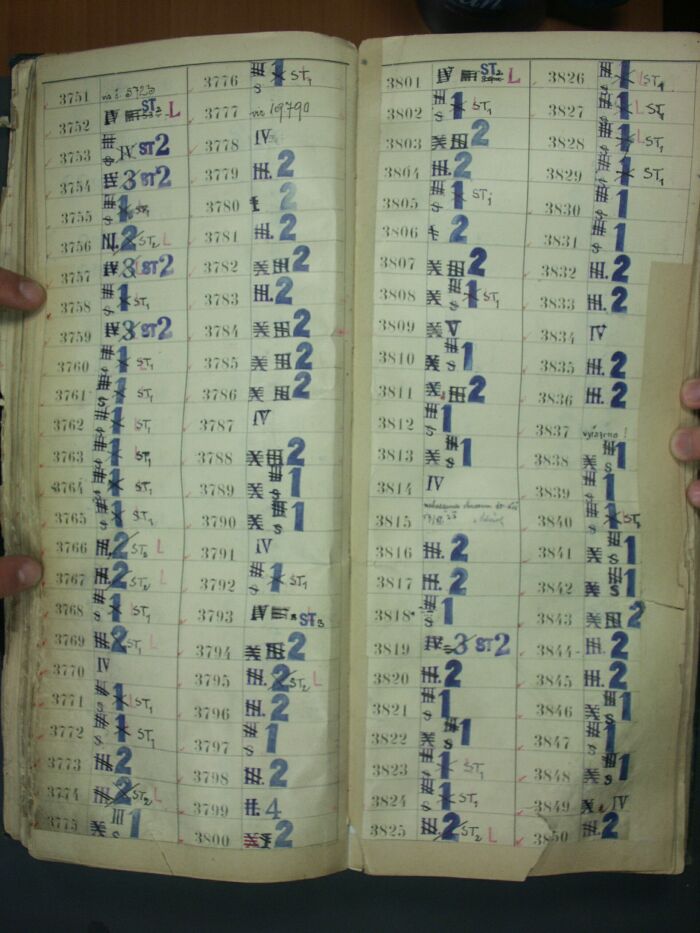 3751
3752 IV ST2 L
3753 S IV ST2
3754 IV 3 ST2
3755 S 1 ST1
3756 III. 2 ST2 L
3757 IV 3 ST2
3758 S 1 ST1
3759 IV 3 ST2
3760 S 1 ST1
3761 S 1 ST1
3762 S 1 ST1
3763 S 1 ST1
3764 S 1 ST1
3765 S 1 ST1
3766 III. 2 ST2 L
3767 III. 2 ST2 L
3768 S 1 ST1
3769 III. 2 ST1 L
3770 IV
3771 S 1 ST1
3772 S 1 ST1
3773 III. 2
3774 III. 2 ST2 L
3775 X III S 1
3776 III S 1 ST1
3777 19790
3778 IV
3779 III. 2
3780 2
3781 III. 2
3782 X III 2
3783 III. 2
3784 X III 2
3785 X III 2
3786 X III 2
3787 IV
3788 X III 2
3789 X III S 1
3790 X III S 1
3791 IV
3792 III S 1 ST1
3793 IV ST3
3794 X III 2
3795 III. 2 ST2 L
3796 III. 2
3797 III S 1
3798 III. 2
3799 II. 4
3800 2
3801 IV ST2 L
3802 III S 1 ST1
3803 X III 2
3804 III. 2
3805 III S 1 ST1
3806 2
3807 X III 2
3808 X III S 1 ST1
3809 X V
3810 X III S 1
3811 X III 2
3812 III S 1
3813 X III S 1
3814 IV
3815
3816 III. 2
3817 III. 2
3818 S 1
3819 IV 3 ST2
3820 III. 2
3821 III S 1
3822 X III S 1
3823 III S 1 ST1
3824 III S 1 ST1
3825 III. 2 ST2 L
3826 III S 1 L ST1
3827 III S 1 L ST1
3828 III S 1 L ST1
3829 III S 1 ST1
3830 III S 1
3831 III S 1
3832 III. 2
3833 III. 2
3834 IV
3835 III. 2
3836 III. 2
3837
3838 X III S 1
3839 III S 1
3840 III S 1 ST1
3841 X III S 1
3842 X III S 1
3843 X III 2
3844 III. 2
3845 III. 2
3846 X III S 1
3847 III S 1
3848 X III S 1
3849 X IV
3850 III. 2